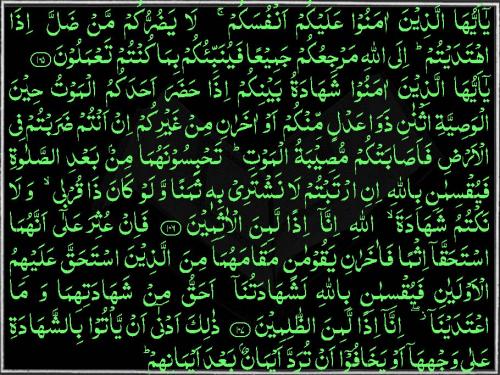 يٰۤاَيُّهَا الَّذِيْنَ اٰمَنُوْا عَلَيْكُمْ اَنْفُسَكُمْ ۚ لَا يَضُرُّكُمْ مَّنْ ضَلَّ اِذَا
اهْتَدَيْتُمْ ؕ اِلَى اللّٰهِ مَرْجِعُكُمْ جَمِيْعًا فَيُنَبِّئُكُمْ بِمَا كُنْتُمْ تَعْمَلُوْنَ ﴿۱۰۵﴾
يٰۤاَيُّهَا الَّذِيْنَ اٰمَنُوْا شَهَادَةُ بَيْنِكُمْ اِذَا حَضَرَ اَحَدَكُمُ الْمَوْتُ حِيْنَ
الْوَصِيَّةِ اثْنٰنِ ذَوَا عَدْلٍ مِّنْكُمْ اَوْ اٰخَرٰنِ مِنْ غَيْرِكُمْ اِنْ اَنْتُمْ ضَرَبْتُمْ فِى
الْاَرْضِ فَاَصَابَتْكُمْ مُّصِيْبَةُ الْمَوْتِ ؕ تَحْبِسُوْنَهُمَا مِنْۢ بَعْدِ الصَّلٰوةِ
فَيُقْسِمٰنِ بِاللّٰهِ اِنِ ارْتَبْتُمْ لَا نَشْتَرِىْ بِهٖ ثَمَنًا وَّلَوْ كَانَ ذَا قُرْبٰى ۙ وَلَا
نَكْتُمُ شَهَادَةَ ۙ اللّٰهِ اِنَّاۤ اِذًا لَّمِنَ الْاٰثِمِيْنَ ﴿۱۰۶﴾ فَاِنْ عُثِرَ عَلٰٓى اَنَّهُمَا
اسْتَحَقَّاۤ اِثْمًا فَاٰخَرٰنِ يَقُوْمٰنِ مَقَامَهُمَا مِنَ الَّذِيْنَ اسْتَحَقَّ عَلَيْهِمُ
الْاَوْلَيٰنِ فَيُقْسِمٰنِ بِاللّٰهِ لَشَهَادَتُنَاۤ اَحَقُّ مِنْ شَهَادَتِهِمَا وَ مَا
اعْتَدَيْنَاۤ ۖ اِنَّاۤ اِذًا لَّمِنَ الظّٰلِمِيْنَ ﴿۱۰۷﴾ ذٰلِكَ اَدْنٰٓى اَنْ يَّاْتُوْا بِالشَّهَادَةِ
عَلٰى وَجْهِهَاۤ اَوْ يَخَافُوْۤا اَنْ تُرَدَّ اَيْمَانٌۢ بَعْدَ اَيْمَانِهِمْ ؕ